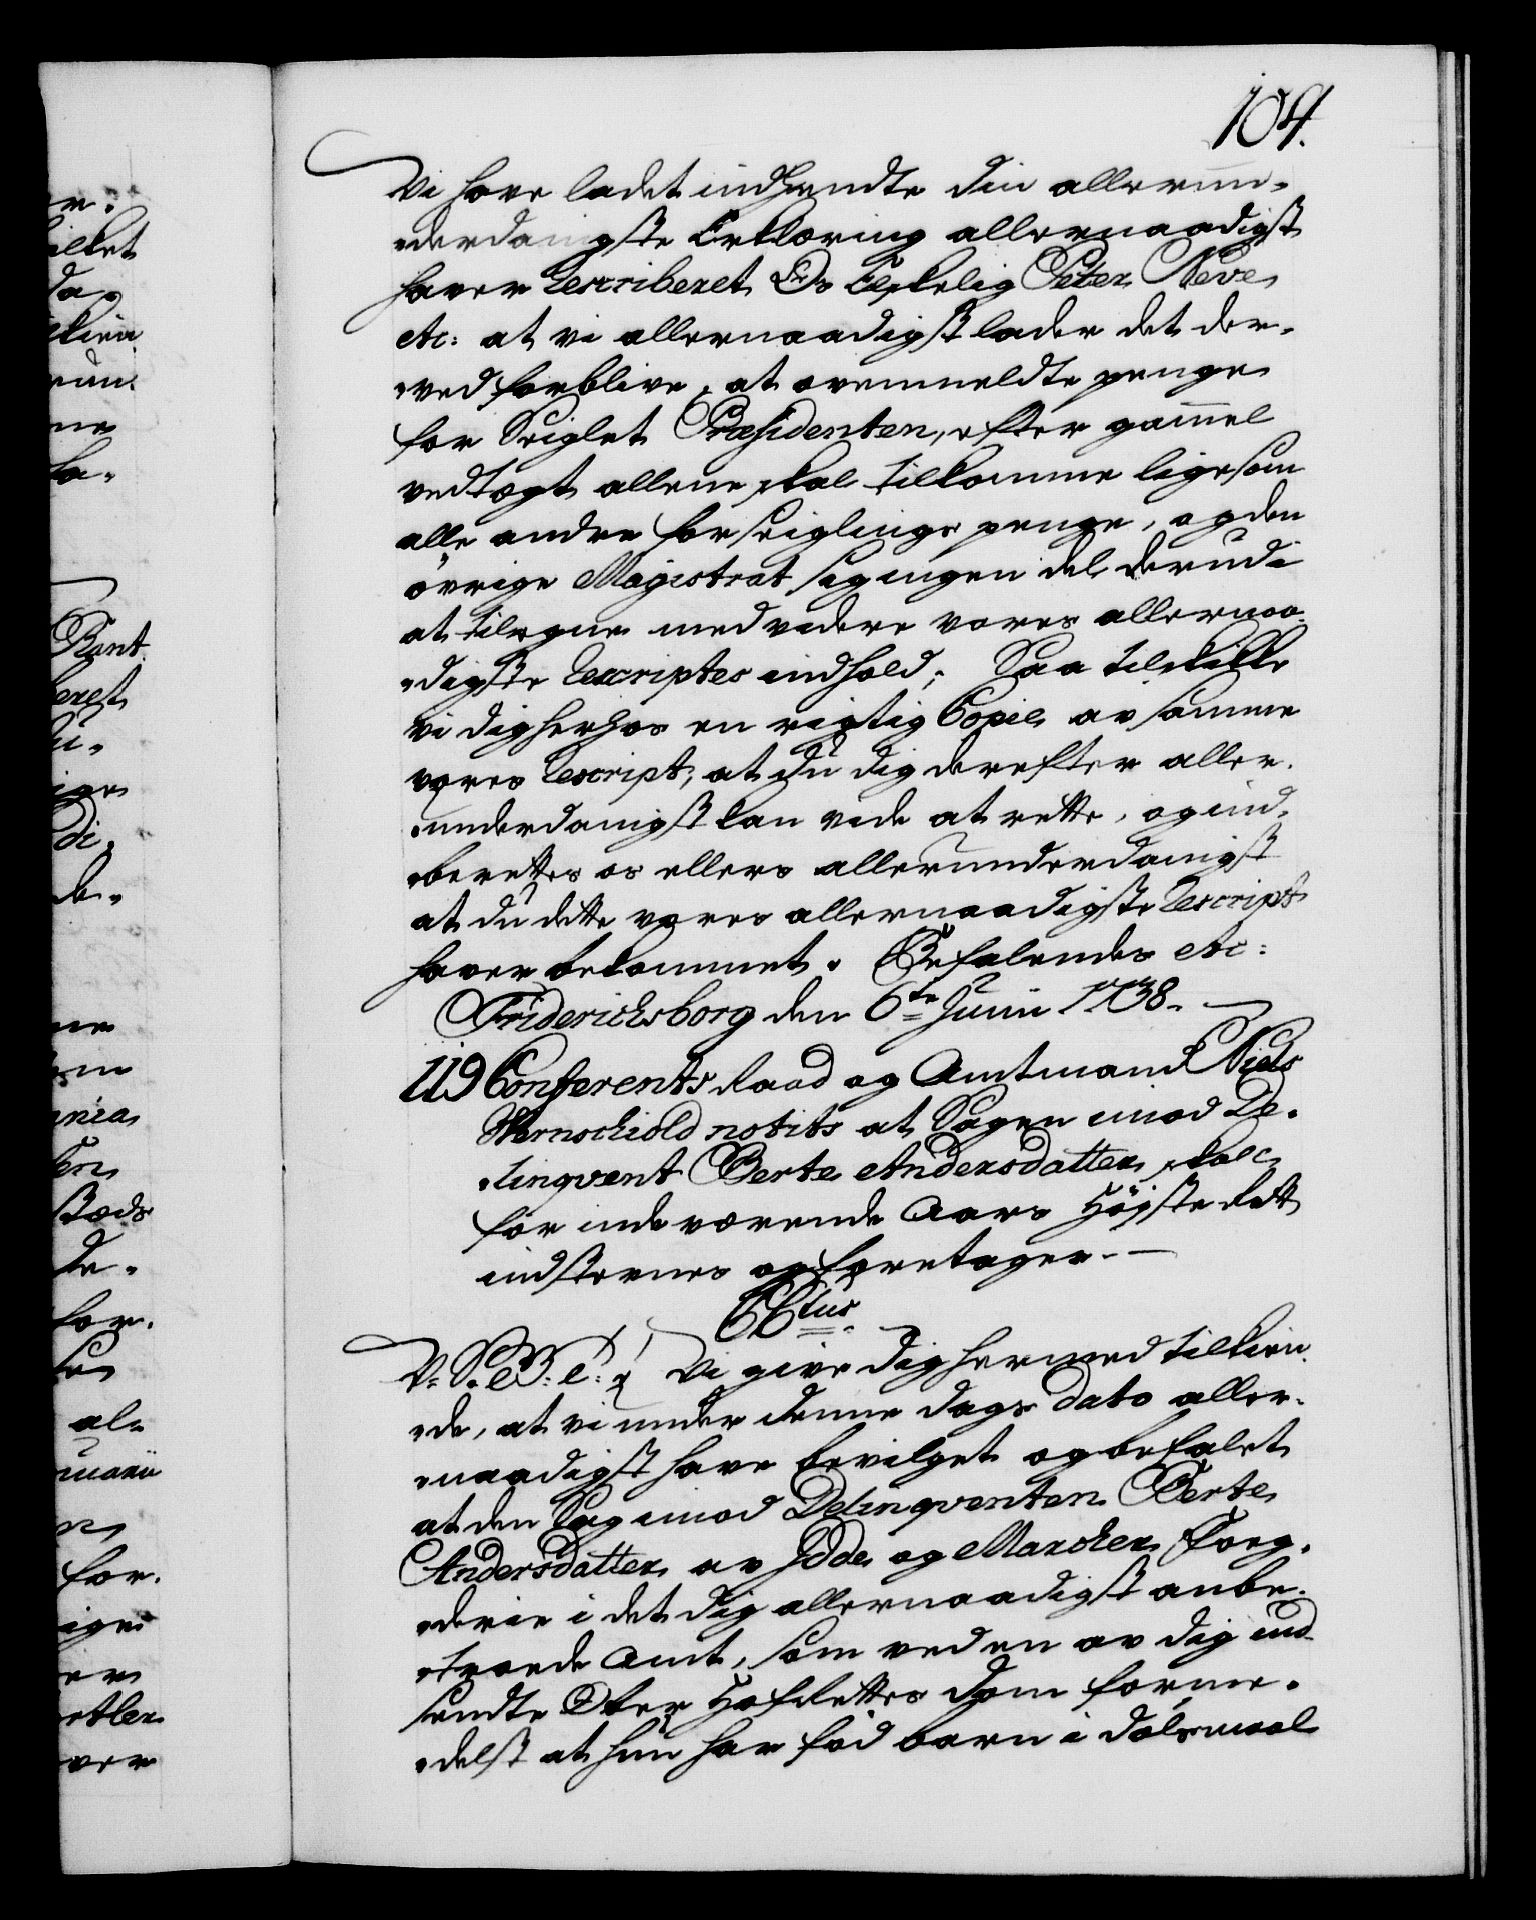 104.
Vi have ladet indhændte din allerun-
derdanigste Erklæring allernaadigst
haver Rescriberet Os Elskelig Peter Neve
etc: at vi allernaadigst lader det der-
ved forblive, at ovenmeldte penge
for Seiglet Præsidenten, efter gammel
vedtægt allene skal tilkomme ligesom
alle andre forseiglings penge, og den
övrige Magistrat sig ingen del derudi
at tilegne med videre vores allernaa-
digste Rescriptes indhold; Saa tilskikke
vi dig herhos en rigtig Copie av samme
vores Rescript, at du dig derefter aller-
underdanigst kan vide at rette, og ind-
berettes os ellers allerunderdanigst
at du dette vores allernaadigste Rescript
haver bekommet. Befalendes etc:
Friderichsborg den 6te Junii 1738.
119 Conferents Raad og Amtmand Niels
Wernschiold notits at Sagen imod De-
linqvent Berte Andersdatter skal
for indeværende Aars Höjste Rett
indstevnes og foretages.
C6tus
Vi give dig hermed tilkien-
de, at vi under denne dags dato aller-
naadigst have bevilget og befalet
at den Sag imod Delinqventen Berte
Andersdatter av Idde og Marcker Fog-
derie i det dig allernaadigst anbe-
troede Amt, som ved en av dig ind-
sendte Ober Hof Rettes dom forme-
delst at hun har föd barn i dölsmaal
er.
illet
da,
kien
run-
ne
ige
di,
de-
ne
nia
en
Stæds
de-
for.
al-
n
for.
er
ver